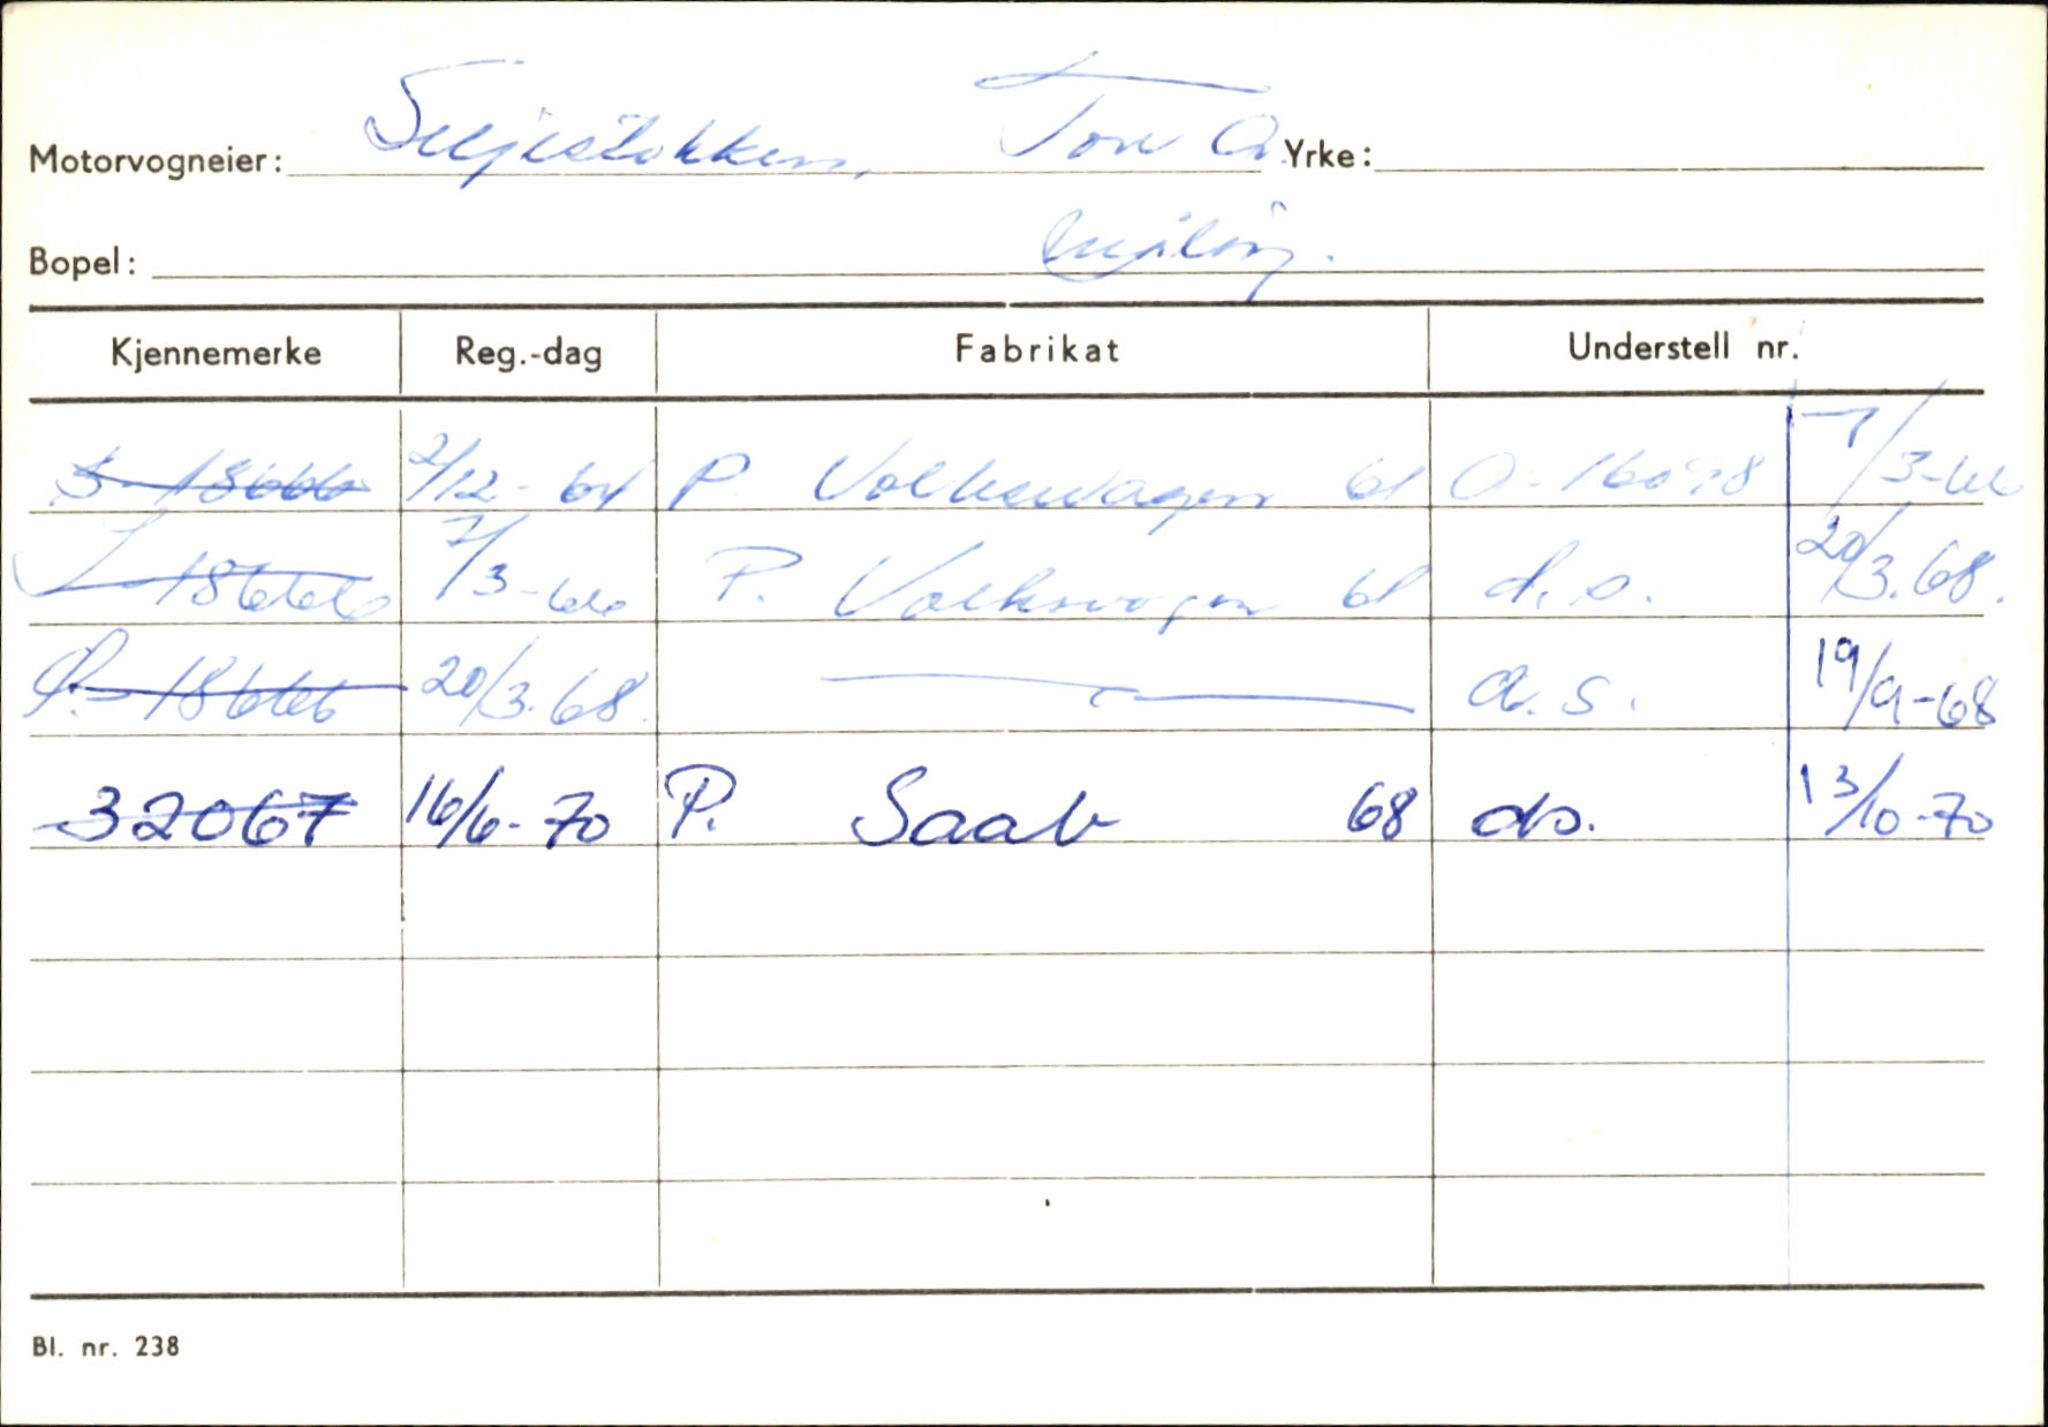 Motorvogneier: Seljestokken, Tore A. Yrke:
Bopel:
Kjennemerke Reg.-dag Fabrikat Understell nr.
S-18666 2/12-64 P. Volkswagen 61 7/3-66
18666 7/3-66 P. Volkswagen 61 d.s. 20/3.68.
18666 20/3.68. d.s. 19/9-68
32067 16/6-70 P. Saab 68 ds. 13/10-70
Bl. nr. 238